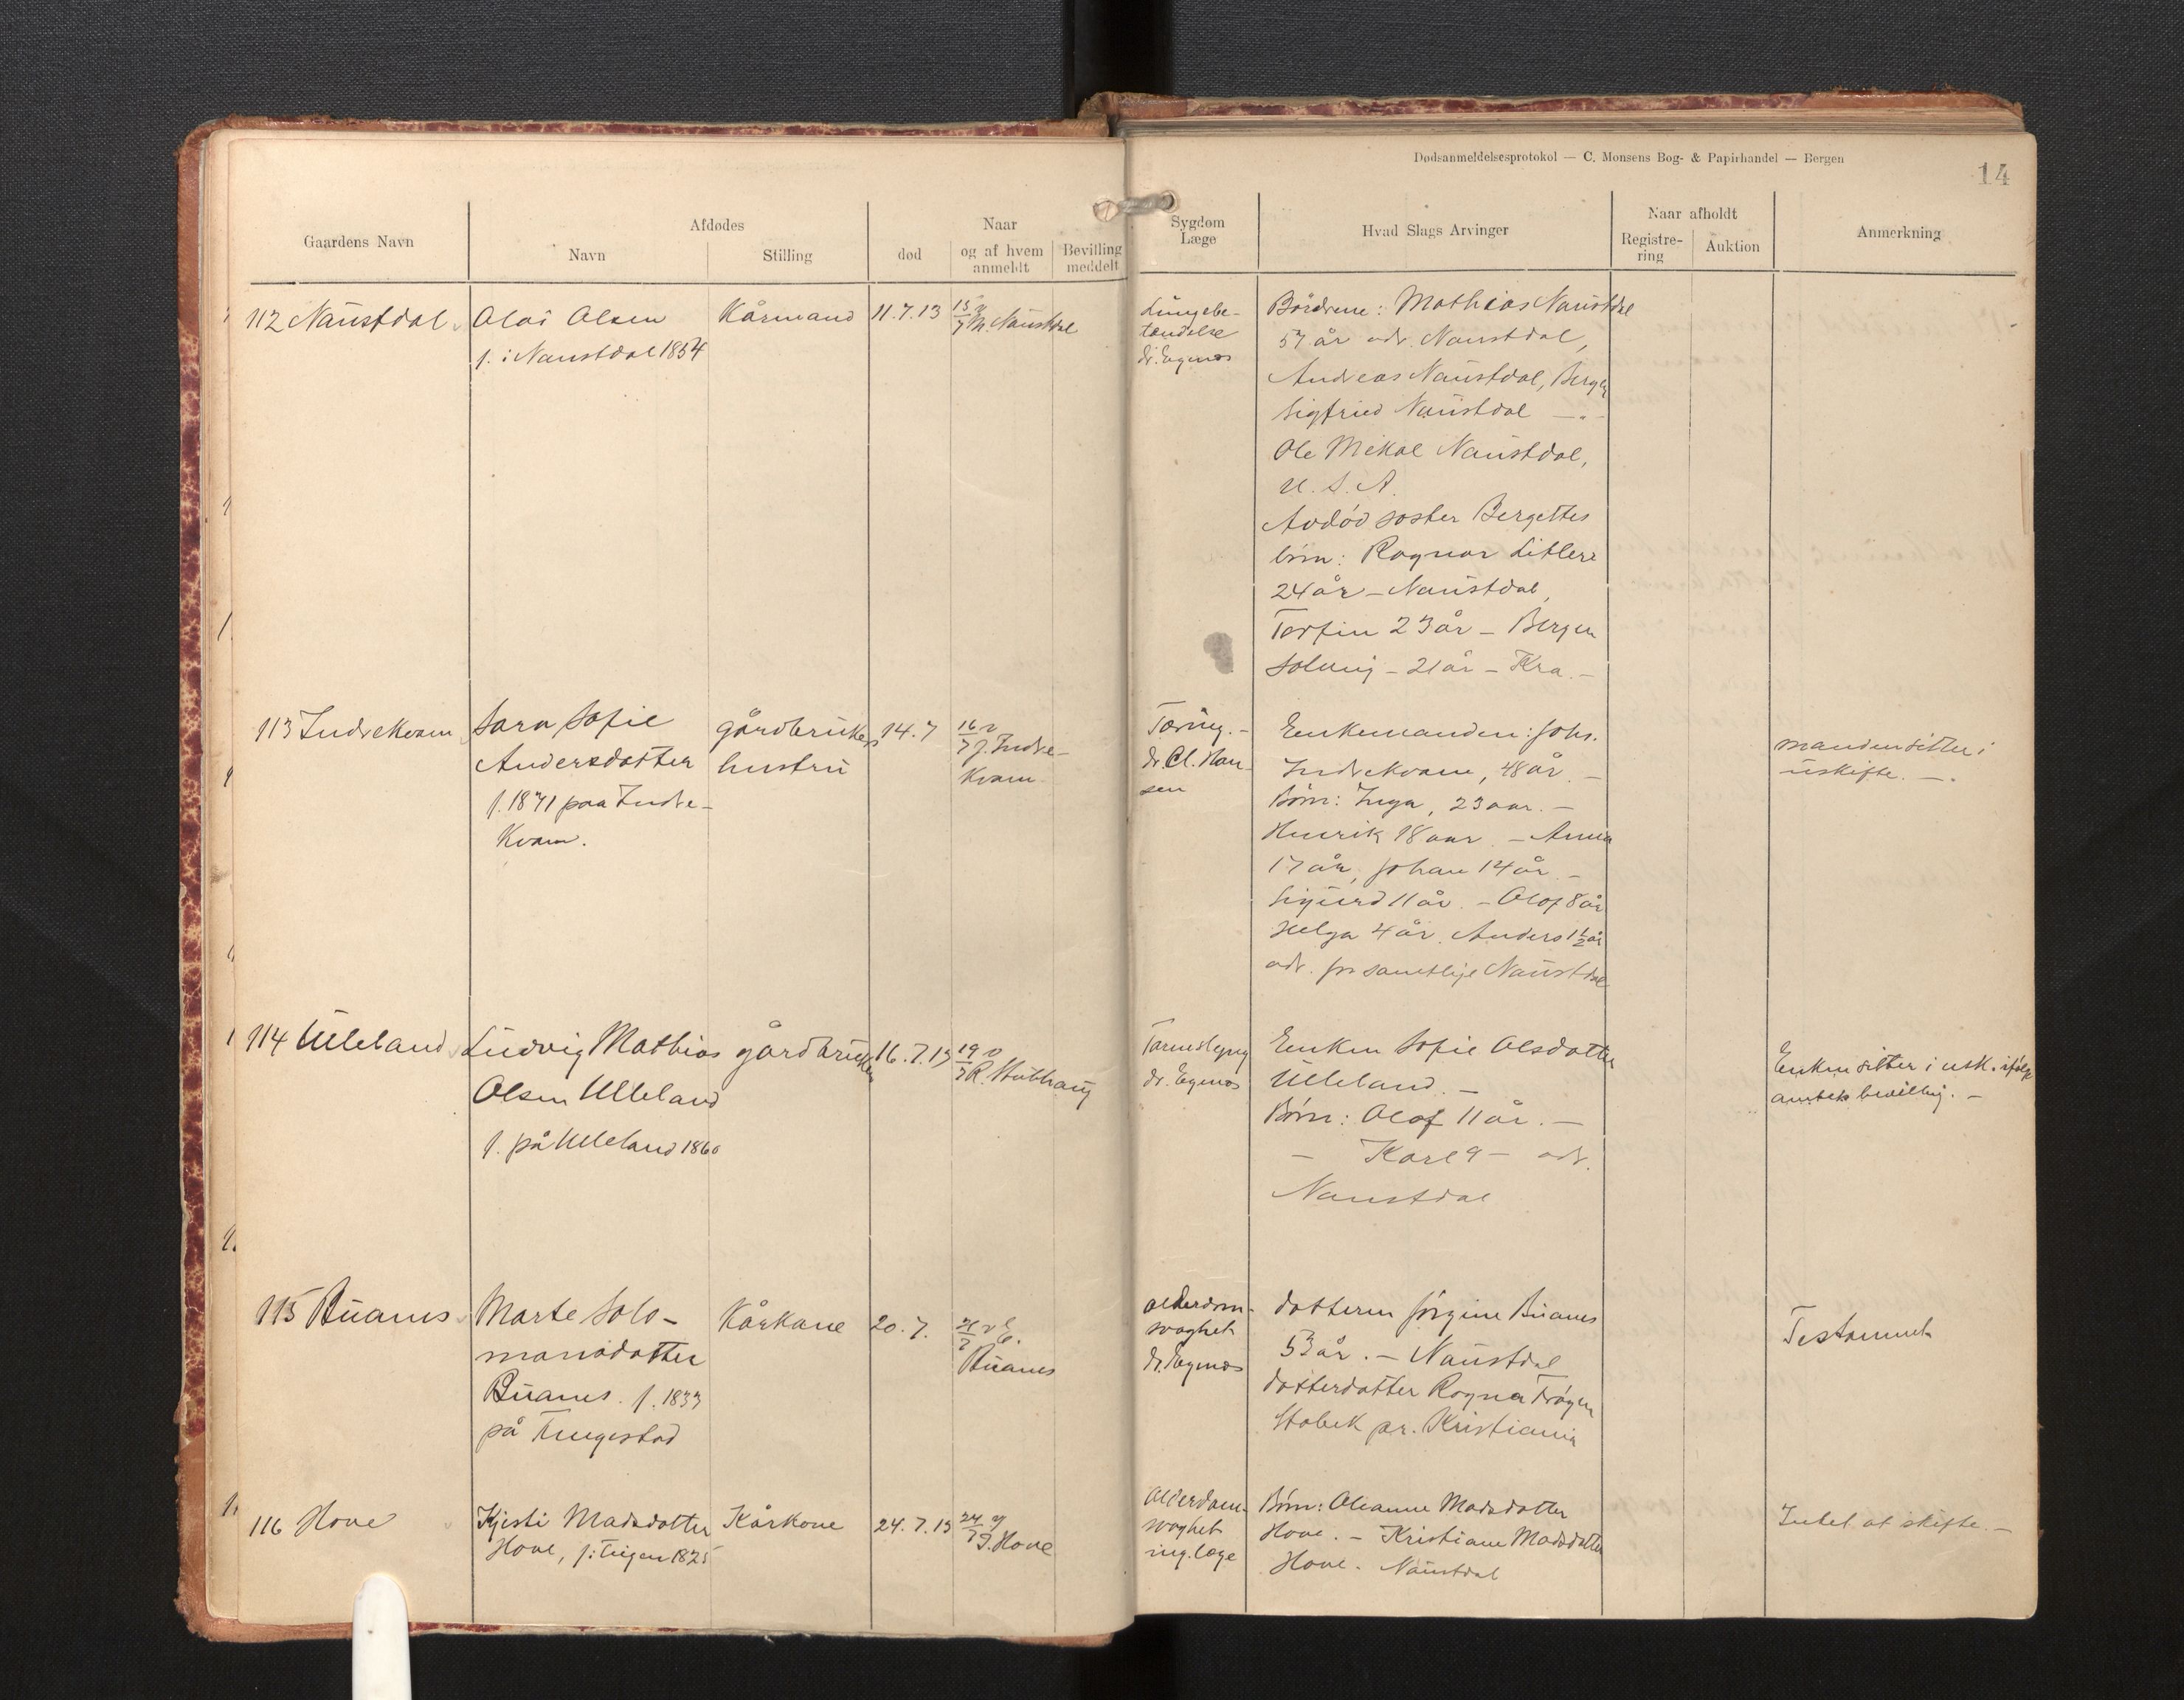 Dødsanmeldelsesprotokol — C. Monsens Bog- & Papirhandel — Bergen
14
Gaardens Navn
Afdødes
Navn
Stilling
Naar
død
og af hvem anmeldt
Bevilling meddelt
Sygdom
Læge
Hvad Slags Arvinger
Naar afholdt
Registrering
Auktion
Anmerkning
112 Naustdal
Olai Olsen
f. i Naustdal 1854
Kårmand
11.7.13
15/7 M. Naustdal
Lungebe-
tændelse
dr. Egenæs
Brødrene: Mathias Naustdal
57 år adr. Naustdal,
Andreas Naustdal, Bergen
Sigfried Naustdal —"—
Ole Mikal Naustdal,
U.S.A.
Avdød søster Bergettes
børn: Ragnar
24 år – Naustdal,
Torfin 23 år – Bergen
Solveig – 21 år – Kra. –
113 Indrekvam
Sara Sofie
Andersdatter
f. 1871 paa Indre-
Kvam.
gårdbrukers
hustru
14.7
16/7 J. Indre-
Kvam
Tæring. –
dr. Cl. Han-
sen
Enkemanden: Johs.
Indrekvam, 48 år. –
Børn: Inga, 23 aar. –
Henrik 18 aar. – Anna
17 år, Johan 14 år. –
Sigurd 11 år. – Olof 8 år
Helga 4 år. Anders 1 1/2 år
adr. for samtlige Naustdal
manden sitter i
uskifte. —.
114 Ulleland
Ludvig Mathias
Olsen Ulleland
f. på Ulleland 1860
gårdbruker
16.7.13
19/7 R. Stubhaug
Tarmslyng
dr. Egenæs
Enken Sofie Olsdatter
Ulleland. –
Børn: Olof 11 år. –
– Karl 9 – adr.
Naustdal
Enken sitter i usk. ifølge
amtets bevilling. –
115 Buanes
Marte Salo-
monsdatter
Buanes. f. 1833
på Tungestad
Kårkone
20.7.
21/7 E.
Buanes
alderdom-
svaghet
dr. Egenæs
datteren Jørgine Buanes
53 år. – Naustdal
datterdatter Ragna
Stabek pr. Kristiania
Testament
116 Hove
Kjersti Madsdatter
Hove, f. i 1825
Kårkone
24.7.13
24/7 J. Hove
Alderdom-
svaghet
ing. læge
Børn: Olianne Madsdatter
Hove. – Kristiane Madsdatter
Hove. Naustdal
Intet at skifte. –